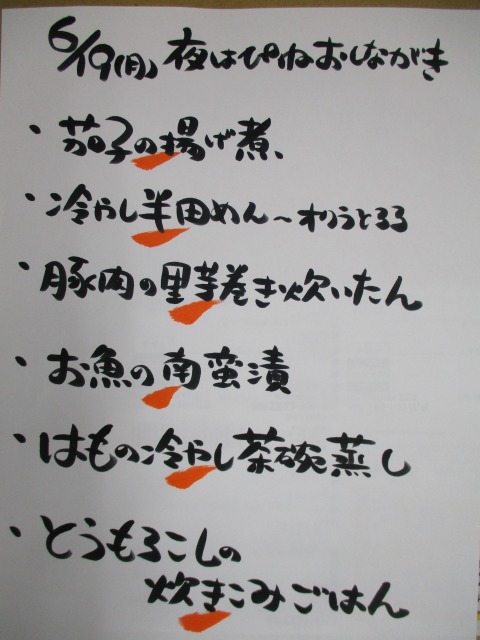 6/19(月) 夜はぴねおしながき
・茄子の揚げ煮、
・冷やし半田めん〜オクラとろろ
・豚肉の里芋巻き炊いたん
・お魚の南蛮漬
・はもの冷やし茶碗蒸し
・とうもろこしの
炊きこみごはん